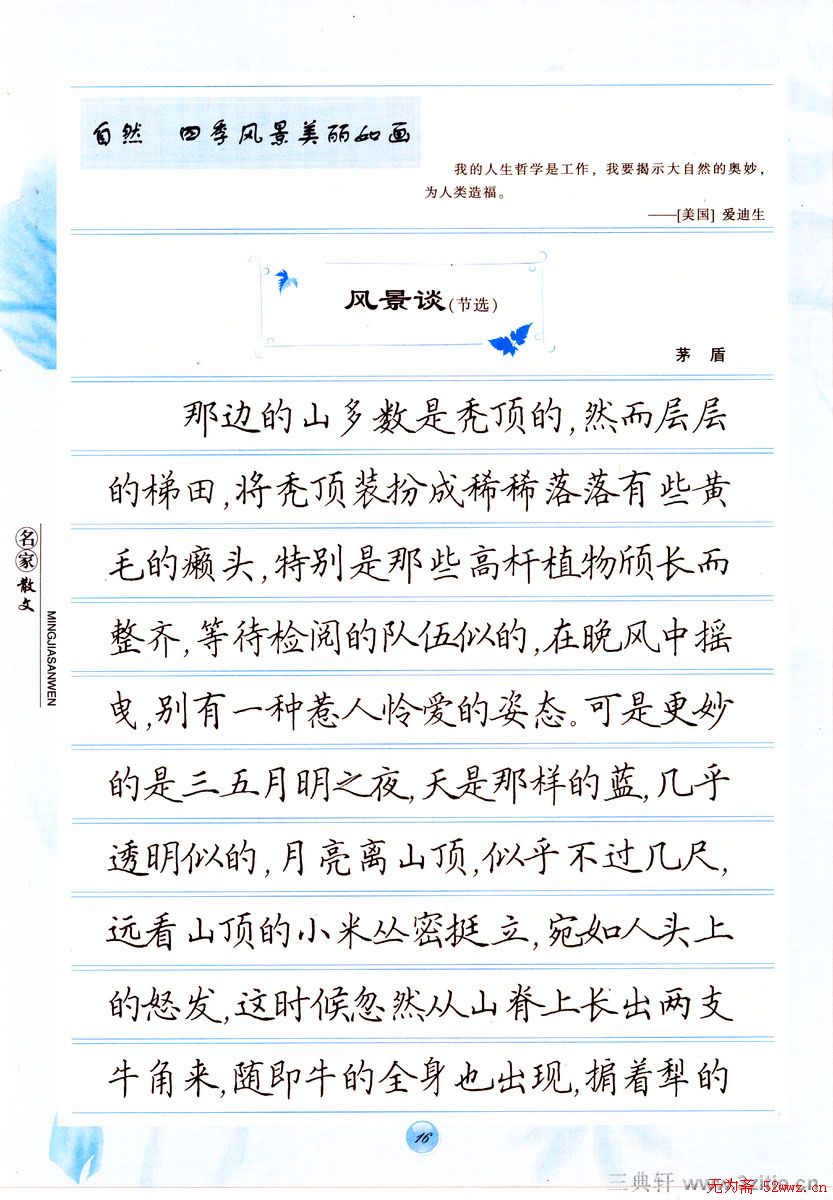 自然 四季风景美丽如画
我的人生哲学是工作，我要揭示大自然的奥妙，
为人类造福。
——[美国] 爱迪生
风景谈(节选)
茅 盾
那边的山多数是秃顶的，然而层层
的梯田，将秃顶装扮成稀稀落落有些黄
毛的癞头，特别是那些高杆植物颀长而
整齐，等待检阅的队伍似的，在晚风中摇
曳，别有一种惹人怜爱的姿态。可是更妙
的是三五月明之夜，天是那样的蓝，几乎
透明似的，月亮离山顶，似乎不过几尺，
远看山顶的小米丛密挺立，宛如人头上
的怒发，这时候忽然从山脊上长出两支
牛角来，随即牛的全身也出现，掮着犁的
名家散文
MINGJIASANWEN
16
三典轩 www.3zitie.cn
无为斋 52wwz.cn